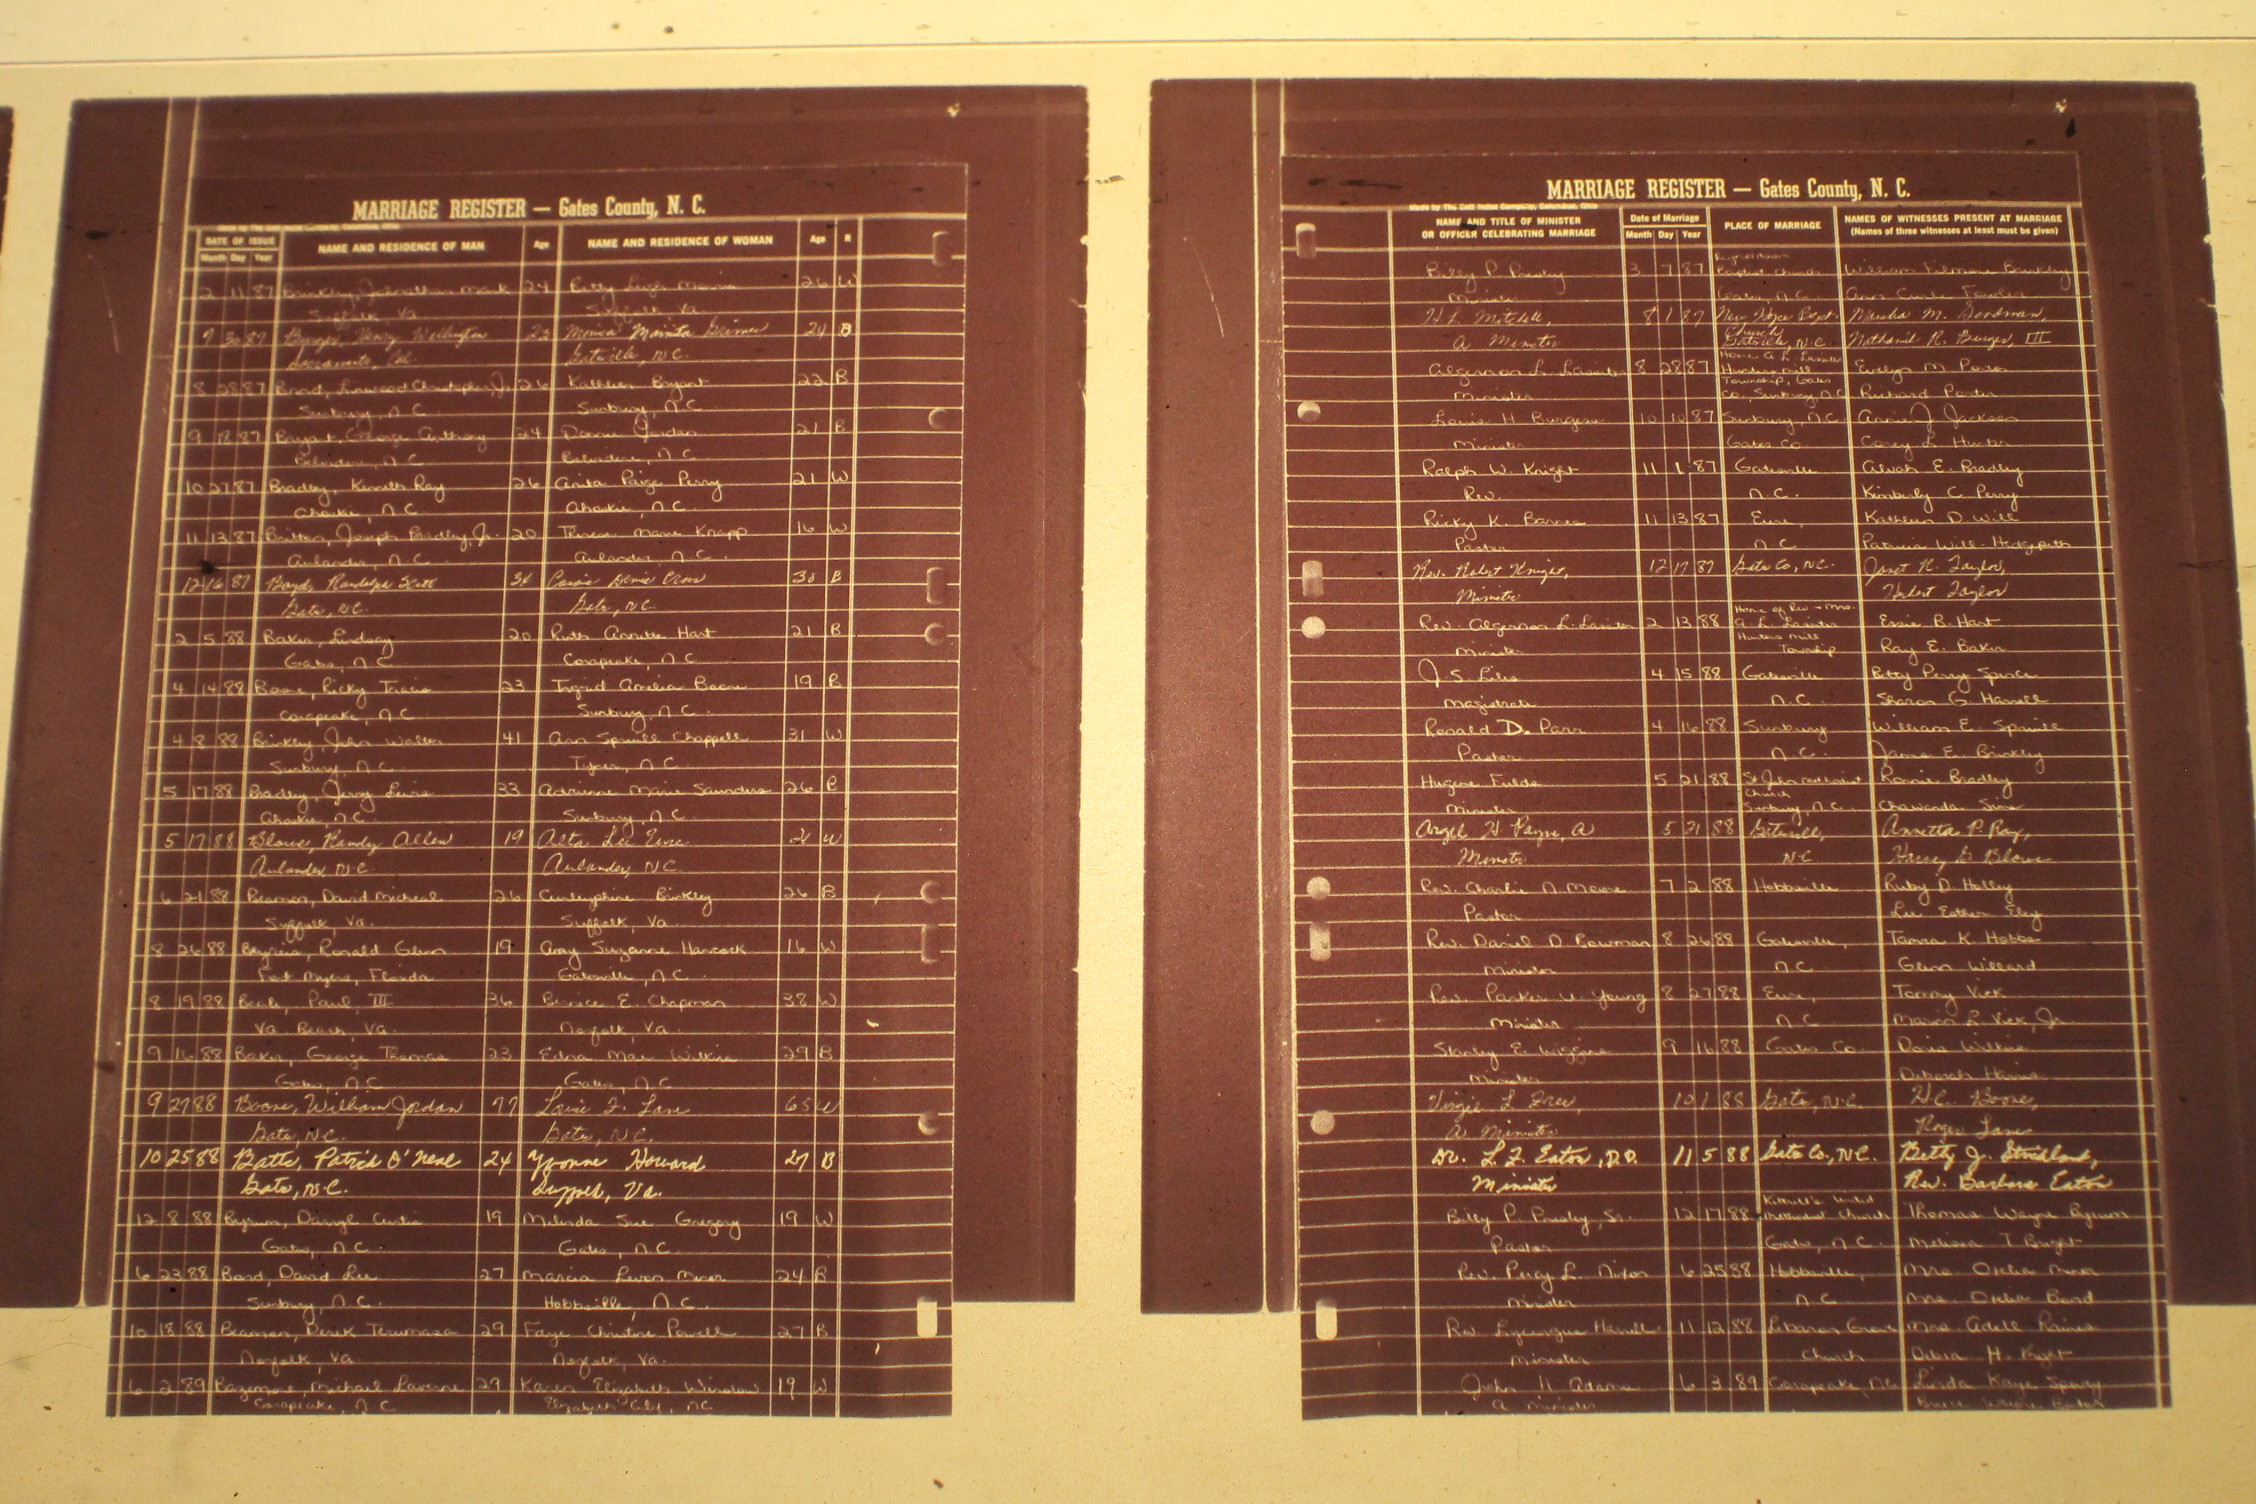 MARRIAGE REGISTER — Gates County, N. C.
DATE OF ISSUE
Month Day Year
NAME AND RESIDENCE OF MAN
Age
NAME AND RESIDENCE OF WOMAN
Age
R
2 11 87 Brinkley, Johnathan Mark 24 Betty Leigh 26 W
Suffolk, Va. Suffolk, Va.
9 30 87 Henry Wellington 23 Monica 24 B
Gatesville, N.C.
8 28 87 Linwood Christopher, Jr. 26 Kathleen Bryant 22 B
Sunbury, N.C. Sunbury, N.C.
9 18 87 Bryant, George Anthony 24 Jordan 21 B
Belvidere, N.C. Belvidere, N.C.
10 27 87 Bradley, Kenneth Ray 26 Anita Paige Perry 21 W
Ahoskie, N.C. Ahoskie, N.C.
11 13 87 Britton, Joseph Bradley, Jr. 20 Theresa Marie Knapp 16 W
Aulander, N.C. Aulander, N.C.
12 16 87 Boyd, Randolph Scott Denise B
Gates, N.C. Gates, N.C.
2 5 88 Baker, Lindsay 20 Ruth Annette Hart 21 B
Gates, N.C. Corapeake, N.C.
4 14 88 Boone, Ricky 23 Ingrid Amelia Boone 19 B
Corapeake, N.C. Sunbury, N.C.
4 8 88 Brinkley, John Walter 41 Ann Spruill Chappell 31 W
Sunbury, N.C. Tyner, N.C.
5 17 88 Bradley, Leroy 33 Adrienne Marie Saunders 26 B
Ahoskie, N.C. Sunbury, N.C.
5 17 88 Blowe, Randy Allen 19 Alta Lee Eure W
Aulander, N.C. Aulander, N.C.
6 21 88 Beamon, David Micheal 26 Brinkley 26 B
Suffolk, Va. Suffolk, Va.
8 26 88 Ronald Glenn 19 Amy Suzanne Hancock 16 W
Fort Myers, Florida Gatesville, N.C.
8 19 88 Beale, Paul, III 36 Bernice E. Chapman 38 W
Va. Beach, Va. Norfolk, Va.
9 16 88 Baker, George Thomas 23 Edna Mae Wilkins 29 B
Gates, N.C. Gates, N.C.
9 27 88 Boone, William Jordan 77 Louise F. Lane 65 W
Gates, N.C. Gates, N.C.
10 25 88 Batts, Patrick O'Neal 24 Yvonne Howard 27 B
Gates, N.C. Va.
12 8 88 Byrum, Darryl Curtis 19 Melinda Sue Gregory 19 W
Gates, N.C. Gates, N.C.
6 23 88 Bond, David Lee 27 Marcia 24 B
Sunbury, N.C. Hobbsville, N.C.
10 18 88 Beamon, Derek 29 Faye Christine Powell 27 B
Norfolk, Va. Norfolk, Va.
6 2 89 Bazemore, Michael Laverne 29 Karen Elizabeth Winslow 19 W
Corapeake, N.C. Elizabeth City, N.C.
MARRIAGE REGISTER — Gates County, N. C.
Made by The Cott Index Company, Columbus, Ohio
NAME AND TITLE OF MINISTER
OR OFFICER CELEBRATING MARRIAGE
Date of Marriage
Month Day Year
PLACE OF MARRIAGE
NAMES OF WITNESSES PRESENT AT MARRIAGE
(Names of three witnesses at least must be given)
Billy P. 3 7 87 Baptist Church William Brinkley
Minister Gates, N.C. Ann
H. L. Mitchell, 8 1 87 New Hope Bapt. M. Goodman,
Church
A Minister Gatesville, N.C. Nathaniel R. III
Algernon L. Lassiter 8 28 87 Home A. L. Lassiter Evelyn M. Porter
Hunters Mill
Township, Gates
Minister Co., Sunbury, N.C. Richard Porter
Louis H. Burgess 10 10 87 Sunbury, N.C. Annie J. Jackson
Minister Gates Co. Corey L. Hunter
Ralph W. Knight 11 1 87 Gatesville Alvah E. Bradley
Rev. N.C. Kimberly C. Perry
Ricky K. Barnes 11 13 87 Eure, Kathleen D. Will
Pastor N.C. Patricia Will Hedgpeth
Rev. Robert Knight, 12 17 87 Gates Co., N.C. Janet R. Taylor,
Minister Herbert Taylor
Rev. Algernon L. Lassiter 2 13 88 Home of Rev. & Mrs. Essie B. Hart
A. L. Lassiter
Minister Hunters Mill Township Ray E. Baker
J. S. Liles 4 15 88 Gatesville Betty Perry Spence
Magistrate N.C. Sharon G. Harrell
Ronald D. Parr 4 16 88 Sunbury William E. Spruill
Pastor N.C. James E. Brinkley
5 21 88 Ronnie Bradley
Church
Minister Sunbury, N.C. Chawanda
H. Payne, A 5 21 88 Gatesville, Annetta P. Ray,
Minister N.C. Blowe
Rev. Charlie N. Moore 7 2 88 Hobbsville Ruby D. Holley
Pastor Lee Esther Eley
Rev. David D. Bowman 8 26 88 Gatesville, Tamra K. Hobbs
Minister N.C. Glenn Willard
Rev. Parker W. Young 8 27 88 Eure, Tommy Vick
Minister N.C. Marion L. Vick, Jr.
Stanley E. Wiggins 9 16 88 Gates Co. Doris Wilkins
Minister Deborah
Virgie L. 10 1 88 Gates, N.C. H.C. Boone,
A Minister Roger Lane
Dr. L. F. Eaton, D.D. 11 5 88 Gates Co., N.C. Betty J. Strickland,
Minister Rev. Barbara Eaton
Billy P. Sr. 12 17 88 United Methodist Church Thomas Wayne Byrum
Pastor Gates, N.C. Melissa T. Bright
Rev. Percy L. Nixon 6 25 88 Hobbsville, Mrs.
Minister N.C. Mrs. Bond
Rev. Harrell 11 12 88 Lebanon Grove Mrs. Adell
Minister Church Debra H. Knight
John N. Adams 6 3 89 Corapeake, N.C. Linda Kaye Spivey
A Minister Bruce Wayne